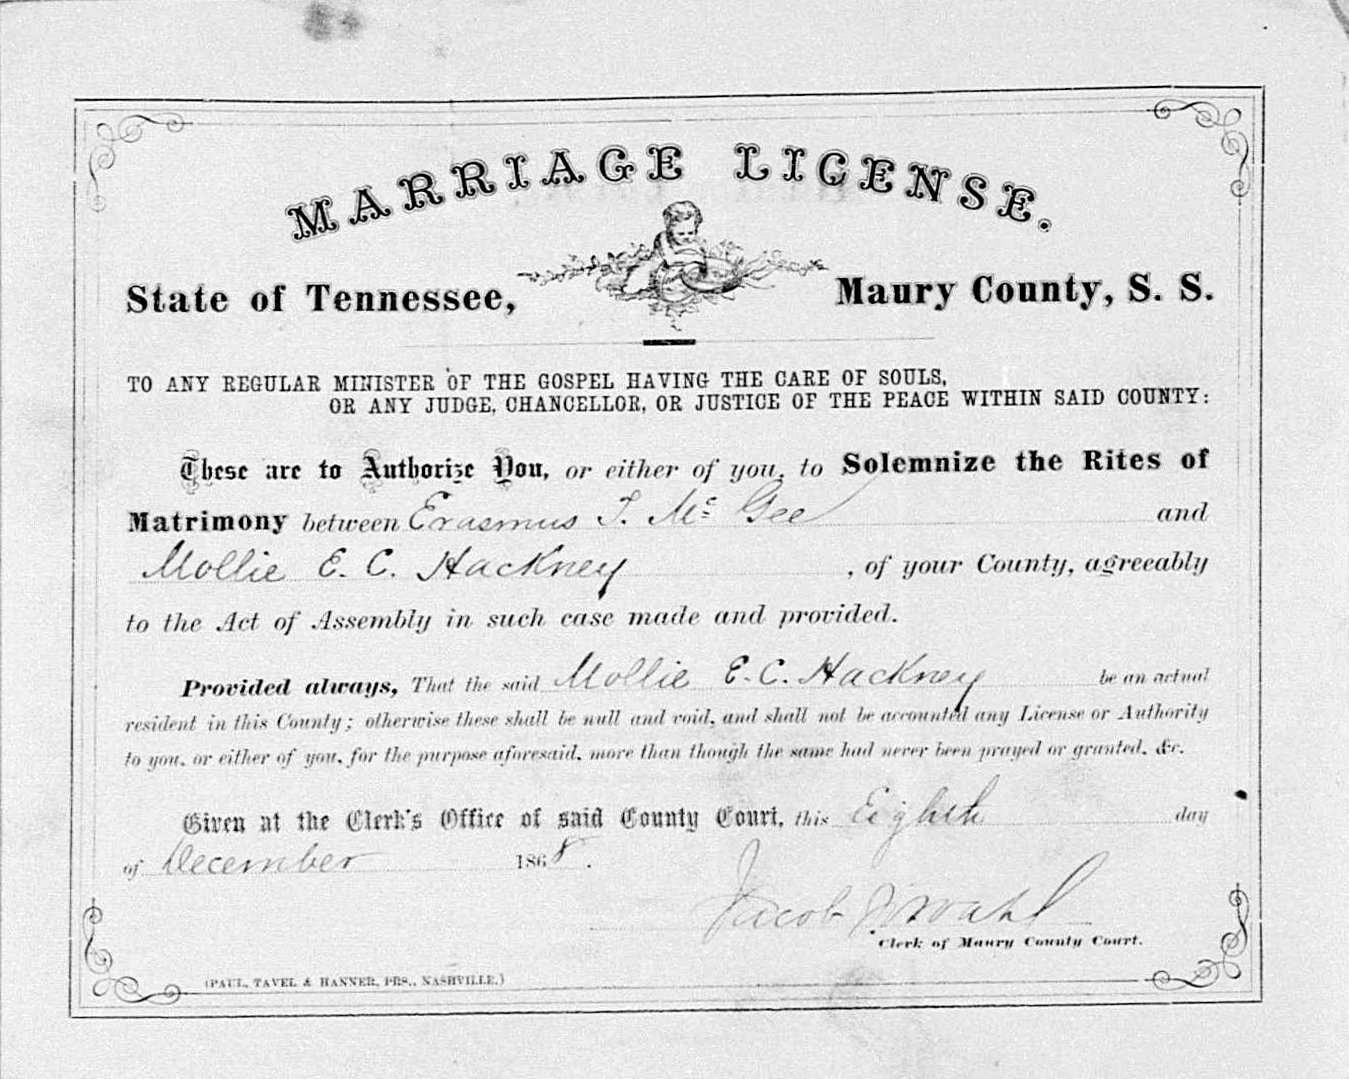 MARRIAGE LICENSE.
State of Tennessee, Maury County, S. S.
TO ANY REGULAR MINISTER OF THE GOSPEL HAVING THE CARE OF SOULS,
OR ANY JUDGE, CHANCELLOR, OR JUSTICE OF THE PEACE WITHIN SAID COUNTY:
These are to Authorize You, or either of you, to Solemnize the Rites of
Matrimony between Erasmus T. Mc Gee and
Mollie E. C. Hackney, of your County, agreeably
to the Act of Assembly in such case made and provided.
Provided always, That the said Mollie E. C. Hackney be an actual
resident in this County; otherwise these shall be null and void, and shall not be accounted any License or Authority
to you, or either of you, for the purpose aforesaid, more than though the same had never been prayed or granted, &c.
Given at the Clerk's Office of said County Court, this Eighth day
of December 1868.
Jacob
Clerk of Maury County Court.
(PAUL, TAVEL & HANNER, PRS., NASHVILLE.)